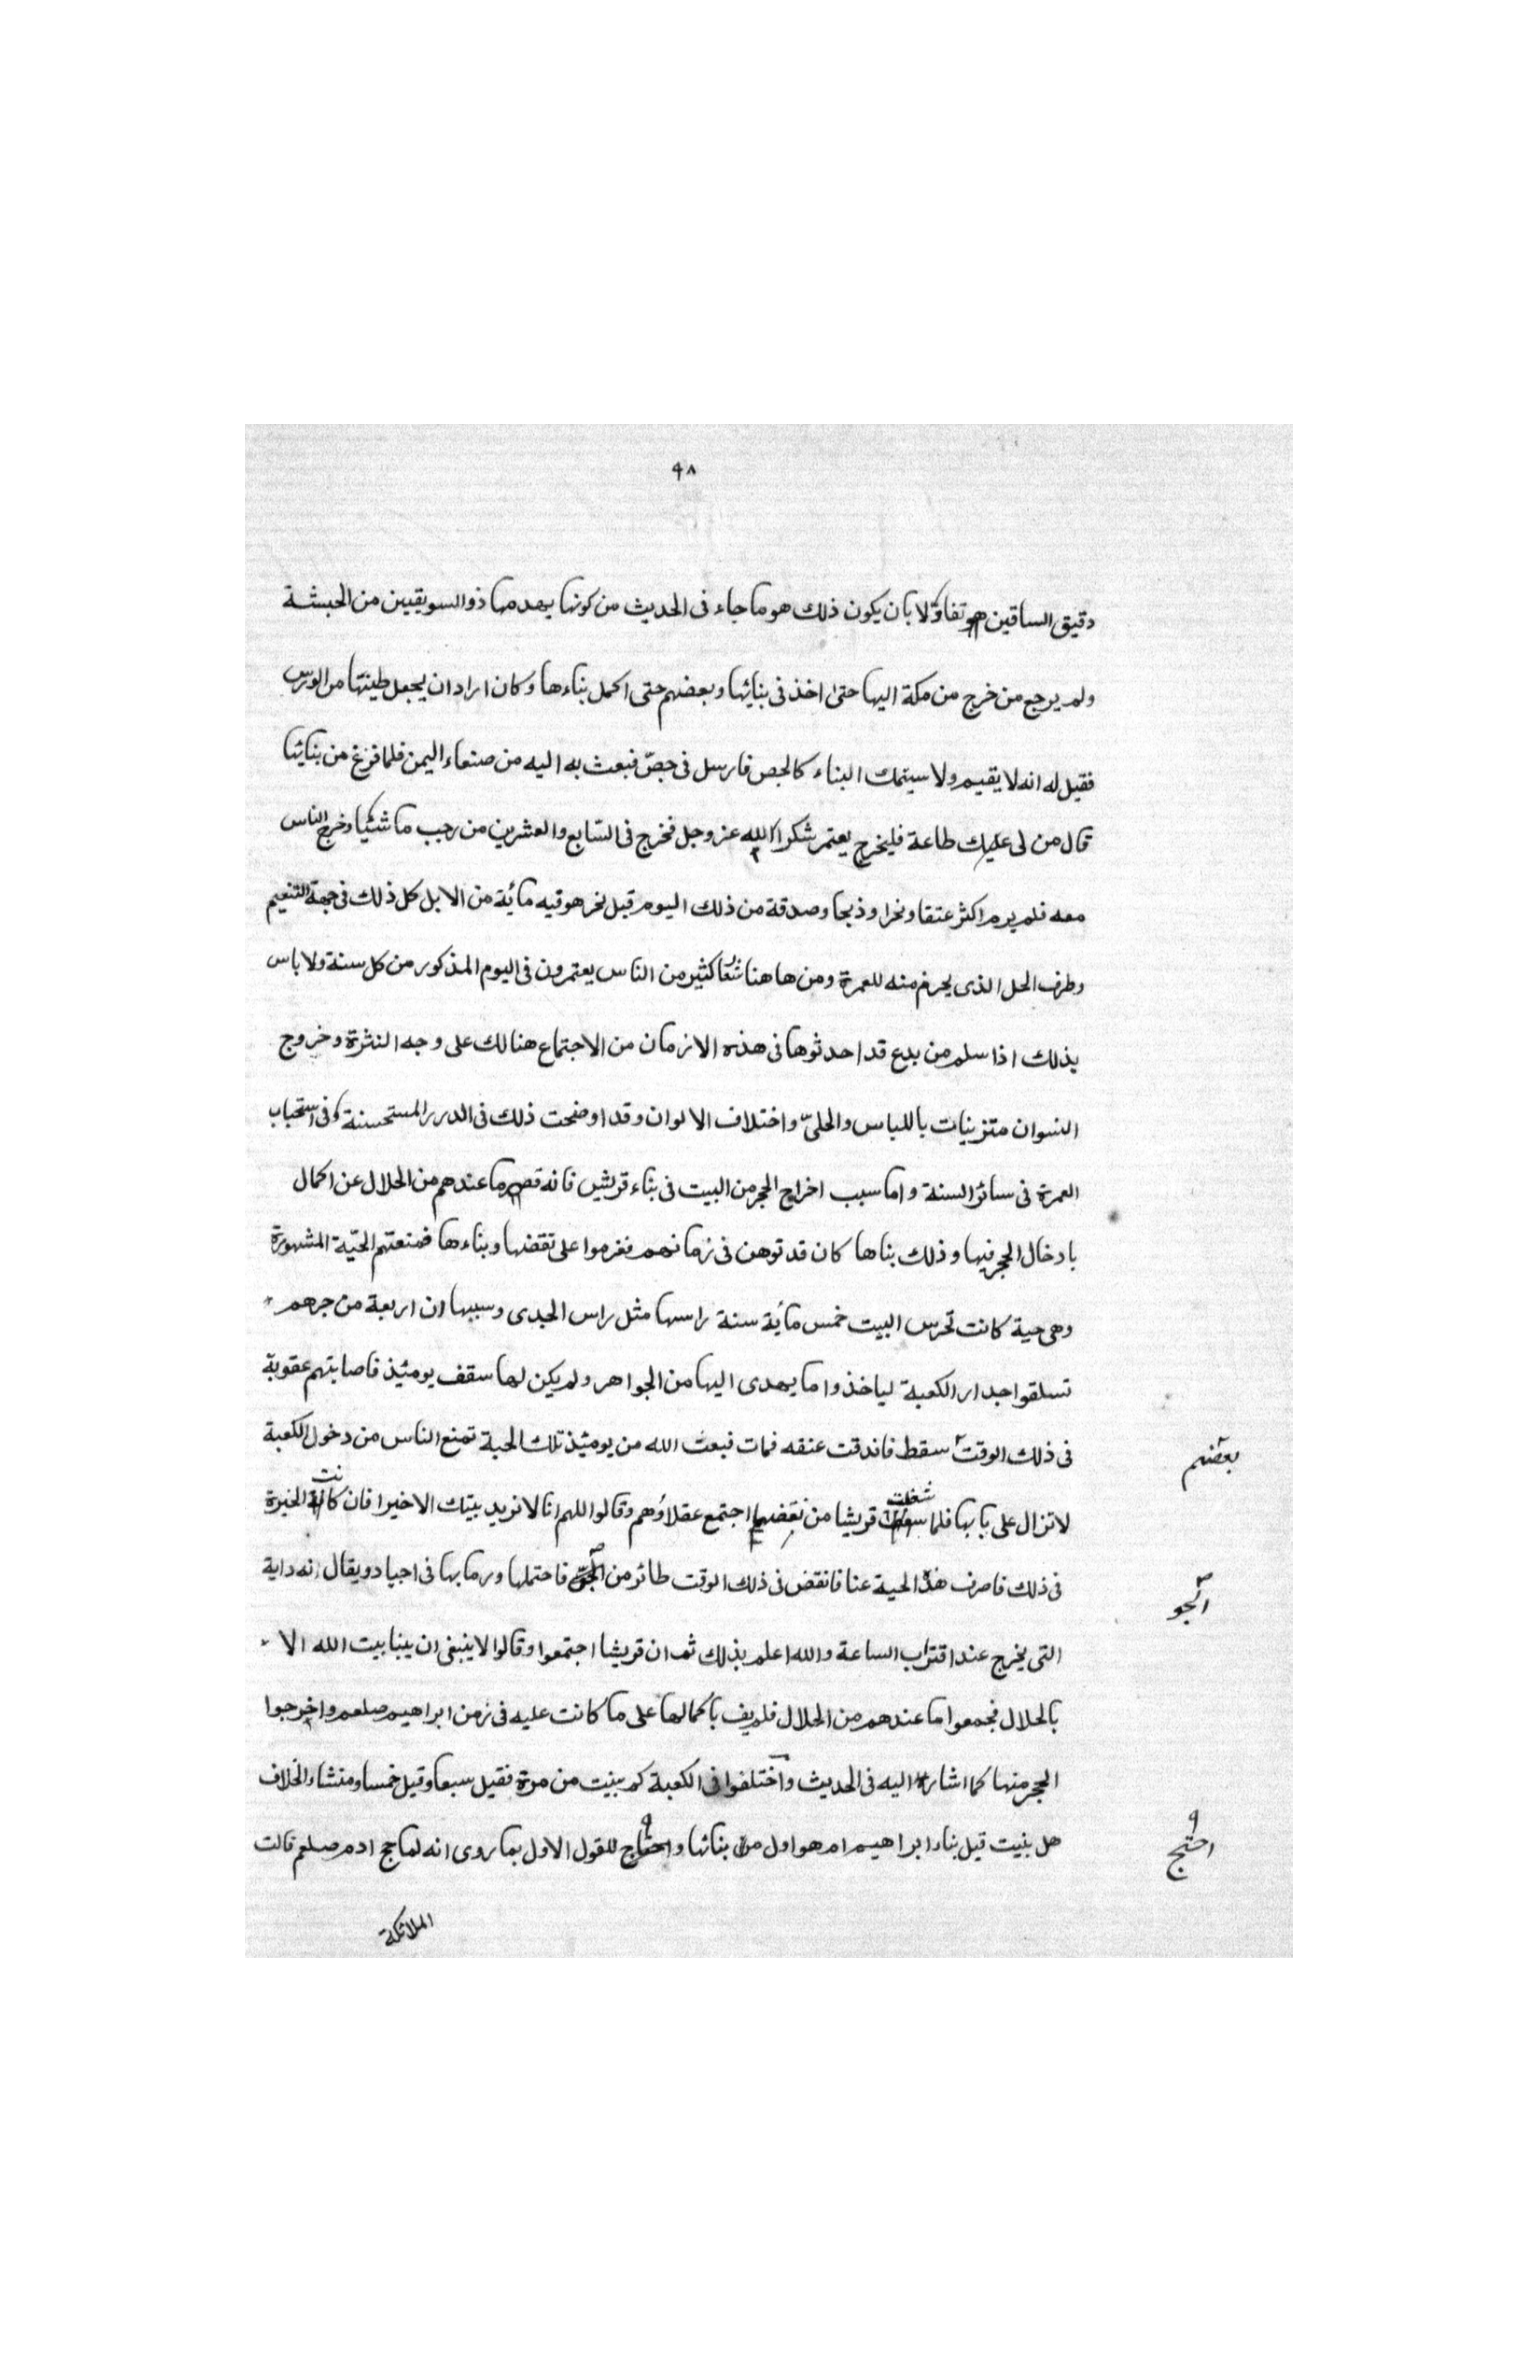 ٤٨
دقيق الساقين تفاؤلا بان يكون ذلك هو ما جاء فى الحديث من كونها يهدمها ذو السويقيين من الحبشة
ولم يرجع من خرج من مكة اليها حتى اخذ فى بنائها وبعضهم حتى اكمل بناءها وكان اراد ان يجعل طينتها من الورس
فقيل له انه لا يقيم ولا سيتمك البناء كالجص فارسل فى جصّ فبعث به اليه من صنعاء اليمن فلما فرغ من بنائها
قال من لى عليك طاعة فليخرج يعتمر شكرا لله عز وجل فخرج فى السّابع والعشرين من رجب ماشيا وخرج الناس
معه فلم ير يوم اكثر عتقا ونحرا وذبحا وصدقة من ذلك اليوم قبل نحر هو فيه مائة من الابل كل ذلك فى جهة التنعيم
وطرف الحل الذى يحرم منه للعمرة ومن هاهنا كثير من الناس يعتمرون فى اليوم المذكور من كل سنة ولا باس
بذلك اذا سلم من بدع قد احدثوها فى هذه الازمان من الاجتماع هنالك على وجه النثرة وخروج
النسوان متزينات باللباس والحلىّ واختلاف الالوان وقد اوضحت ذلك فى الدرر المستحسنة فى استحباب
العمرة فى سائر السنة واما سبب اخراج الحجر من البيت فى بناء قريش فانه قصر ما عندهم من الحلال عن اكمال
بادخال الحجر فيها وذلك بناها كان قد توهن فى زمانهم فعزموا على نقضها وبناءها فمنعتهم الحيّة المشهورة
وهى حية كانت تحرس البيت خمس مأية سنة راسها مثل راس الجدى وسببها ان اربعة من جرهم
تسلقوا جدار الكعبة لياخذوا ما يهدى اليها من الجواهر ولم يكن لها سقف يومئذ فاصابتهم عقوبة
فى ذلك الوقت سقط فاندقت عنقه فمات فبعث الله من يومئذ تلك الحية تمنع الناس من دخول الكعبة
بعضهم
لا تزال على بابها فلما شغلت قريشا من نقضها اجتمع عقلاؤهم وقالوا اللهم انا لا نريد ببيتك الا خيرا فان كانت الخيرة
فى ذلك فاصرف هذه الحية عنا فانقض فى ذلك الوقت طائر من الجو فاحتملها ورما بها فى اجياد ويقال انه دابة
الجو
التى يخرج عند اقتراب الساعة والله اعلم بذلك ثم ان قريشا اجتمعوا وقالوا لا ينبغى ان يبنا بيت الله الا
بالحلال فجمعوا ما عندهم من الحلال فلم يف باكمالها على ما كانت عليه فى زمن ابراهيم صلعم واخرجوا
الحجر منها كما اشار اليه فى الحديث واختلفوا فى الكعبة كم بنيت من مرة فقيل سبعا وقيل خمسا ومنشاء الخلاف
هل بنيت قبل بناء ابراهيم ام هو اول من بنائها واحتاج للقول الاول بما روى انه لما حج ادم صلعم قالت
احتج
الملائكة